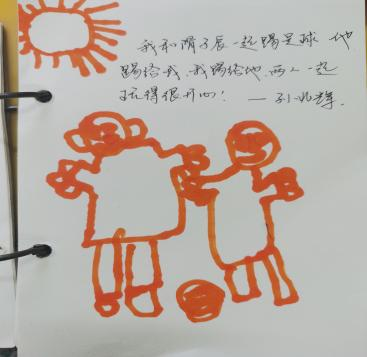 我和 子辰一起踢足球 他
踢给我,我踢给他,两人一起
玩得很开心!—